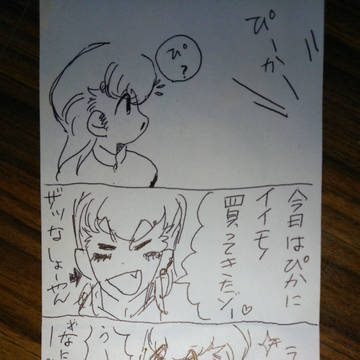 ぴーかー
ぴ？
今日はぴかに
イイモノ
買ってきたゾー♡
ザツなしょーやん